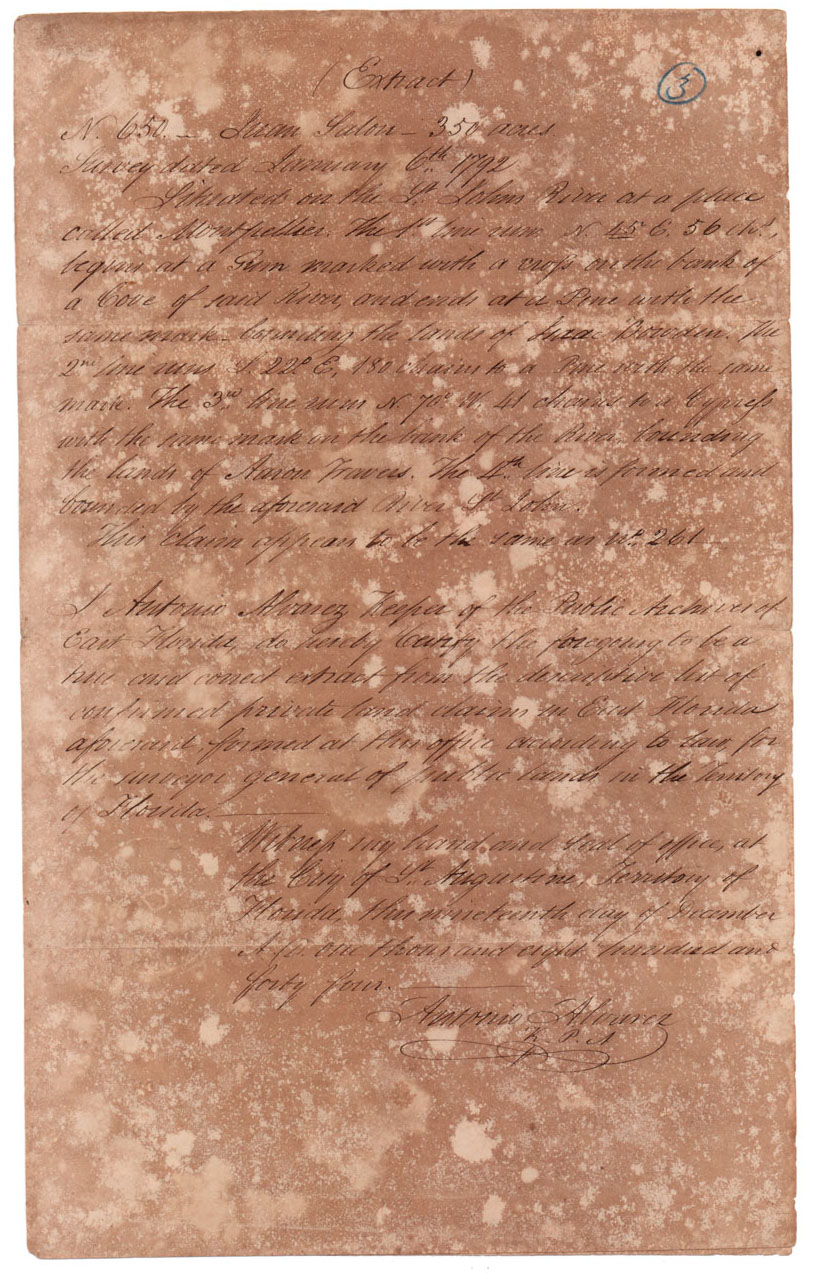 (Extract)
3
N. 650. — Juan Salom — 350 acres
Survey dated January 6th 1792
Situated on the St. Johns River at a place
called Montpellier. The 1st line runs N. 45 E. 56 chs.,
begins at a Gum marked with a cross on the bank of
a Cove of said River, and ends at a Pine with the
same mark bounding the lands of Isaac Bowden. The
2nd line runs S. 22° E, 180 chains to a Pine with the same
mark. The 3rd line runs N. 70° W. 41 chains to a Cypress
with the same mark on the bank of the River bounding
the lands of Aaron Travers. The 4th line is formed and
bounded by the aforesaid River St. Johns.
This Claim appears to be the same as No. 261 —
I Antonio Alvarez Keeper of the Public Archives of
East Florida, do hereby Certify the foregoing to be a
true and correct extract from the descriptive list of
confirmed private land claims in East Florida
aforesaid formed at this office according to law, for
the surveyor general of public lands in the Territory
of Florida. —
Witness my hand and seal of office, at
the City of St. Augustine, Territory of
Florida, this nineteenth day of December
A.D. one thousand eight hundred and
forty four. —
Antonio Alvarez
K. P. A